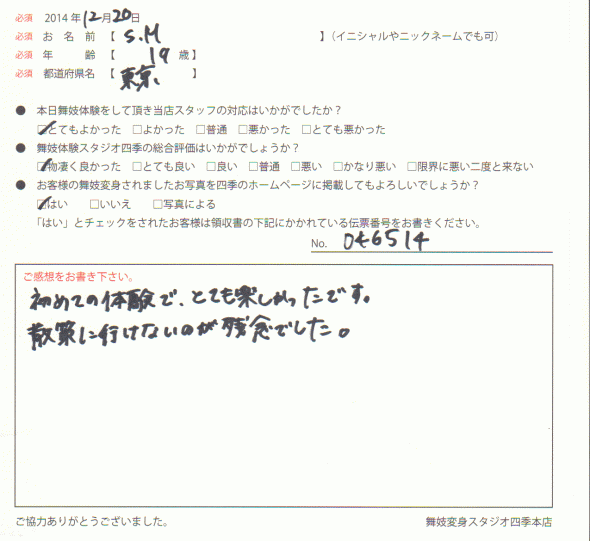 必須 2014年12月20日
必須 お名前【 S.M 】(イニシャルやニックネームでも可)
必須 年齢【 19 歳】
必須 都道府県名【 東京 】
● 本日舞妓体験をして頂き当店スタッフの対応はいかがでしたか?
☑とてもよかった □よかった □普通 □悪かった □とても悪かった
● 舞妓体験スタジオ四季の総合評価はいかがでしょうか?
☑物凄く良かった □とても良い □良い □普通 □悪い □かなり悪い □限界に悪い二度と来ない
● お客様の舞妓変身されましたお写真を四季のホームページに掲載してもよろしいでしょうか?
☑はい □いいえ □写真による
「はい」とチェックをされたお客様は領収書の下記にかかれている伝票番号をお書きください。
No. 046514
ご感想をお書き下さい。
初めての体験で、とても楽しかったです。
散策に行けないのが残念でした。
ご協力ありがとうございました。
舞妓変身スタジオ四季本店